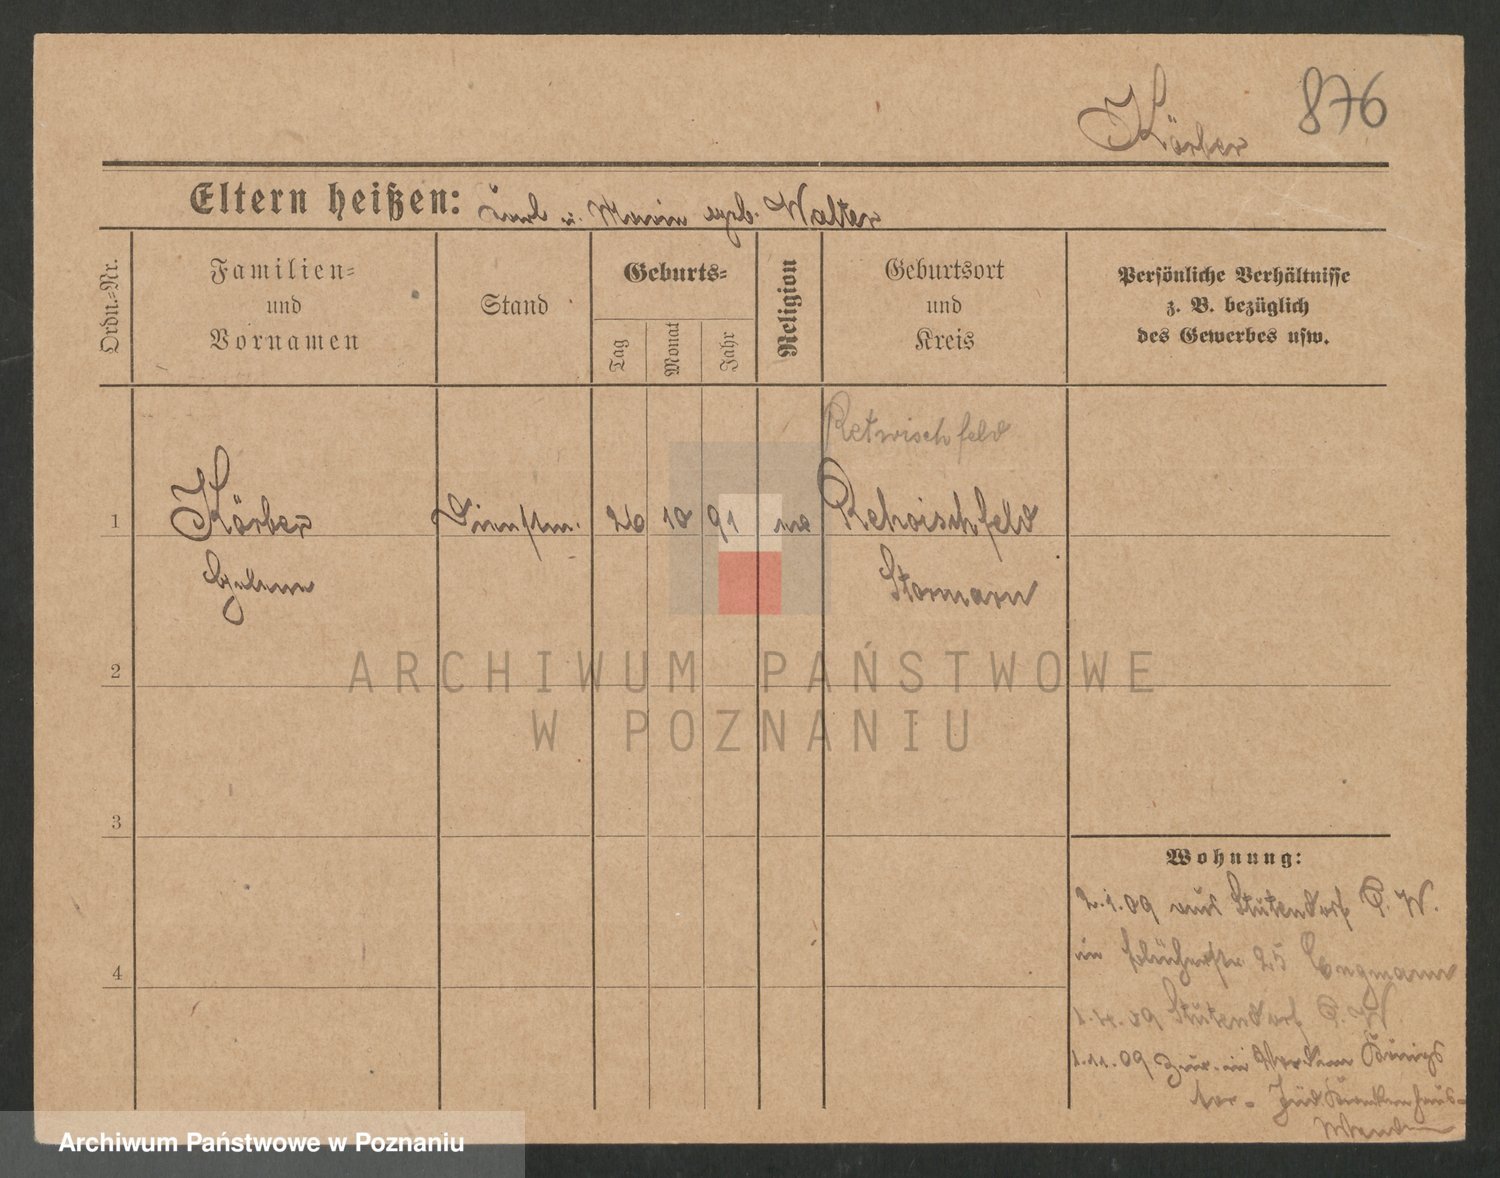 Körber 876
Eltern heißen: u. geb. Walter
Ordn.-Nr.
Familien-
und
Vornamen
Stand
Geburts-
Tag
Monat
Jahr
Religion
Geburtsort
und
Kreis
Persönliche Verhältnisse
z. B. bezüglich
des Gewerbes usw.
Retwischfeld
1 Körber Dienstm. 26 10 91 Rehwischfeld
Stormarn
2
3
4
Wohnung:
2.1.09 aus Stutendorf P. W.
in 25
1.4.09 Stutendorf P. W.
1.11.09 zur. in Königs
tor- Jüd Krankenhaus-
ARCHIWUM PAŃSTWOWE
W POZNANIU
Archiwum Państwowe w Poznaniu